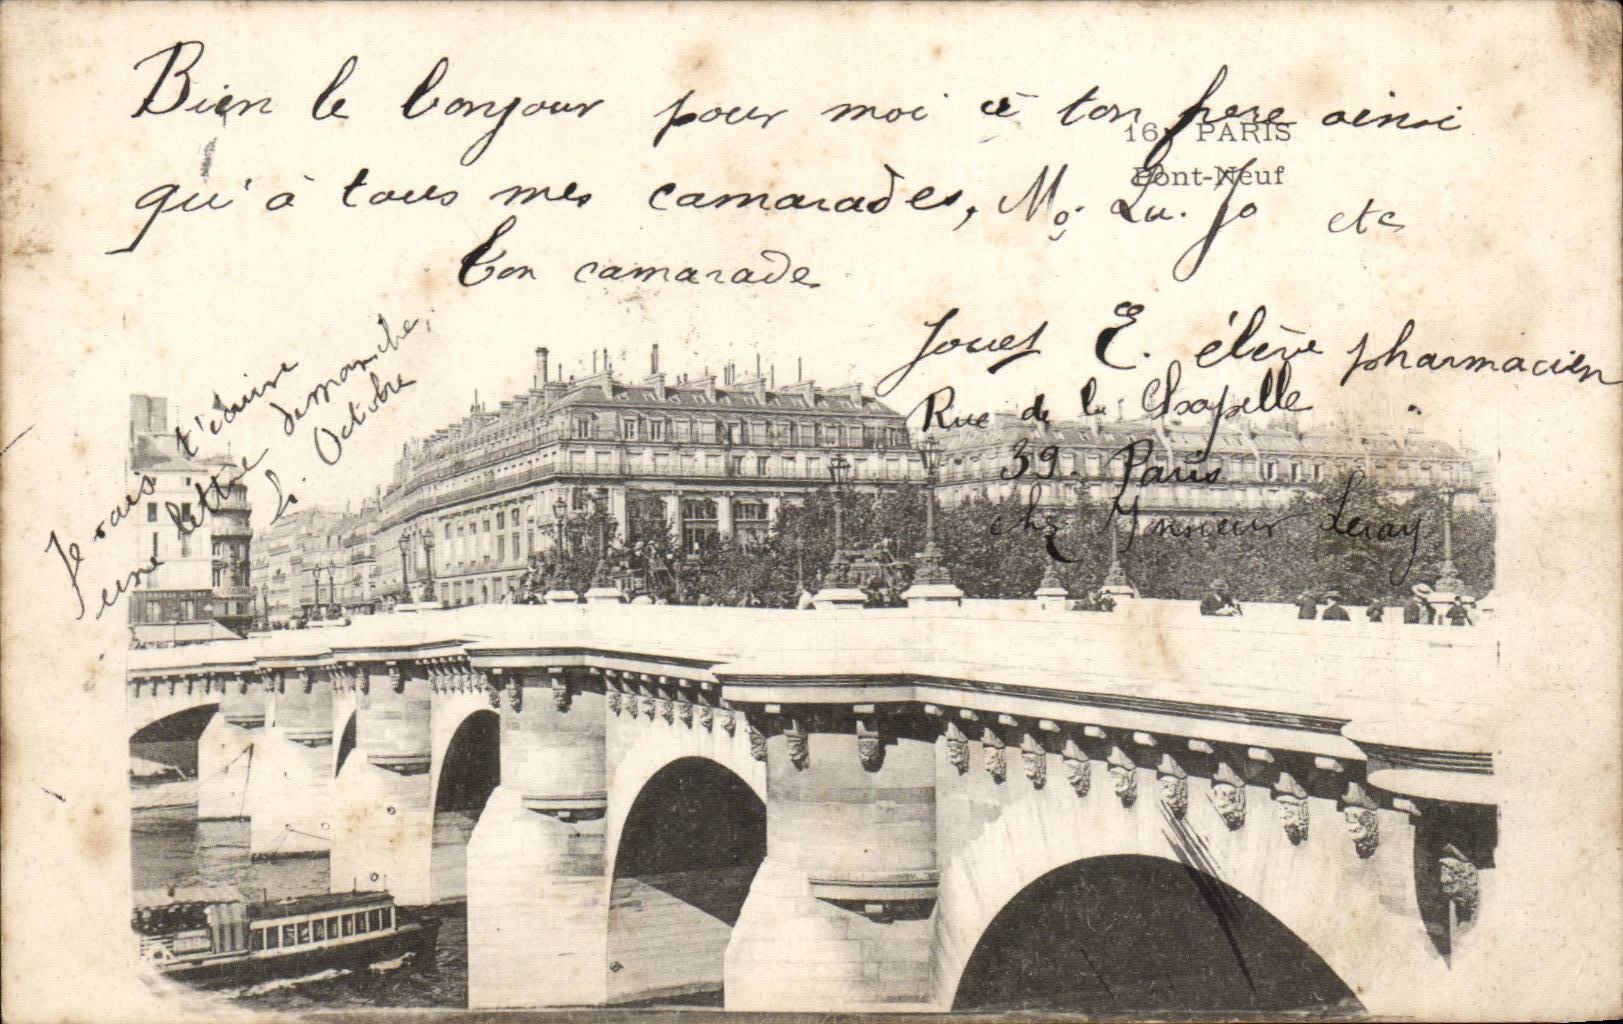 Bien le bonjour pour moi à ton frere ainsi
16. PARIS
Pont-Neuf
qu'à tous mes camarades, Mo. Lu. Jo etc
ton camarade
Jouet E. élève pharmacien
Rue de la Chapelle
39. Paris
chez Monsieur Leray
Je vais t'écrire
une lettre dimanche,
Octobre